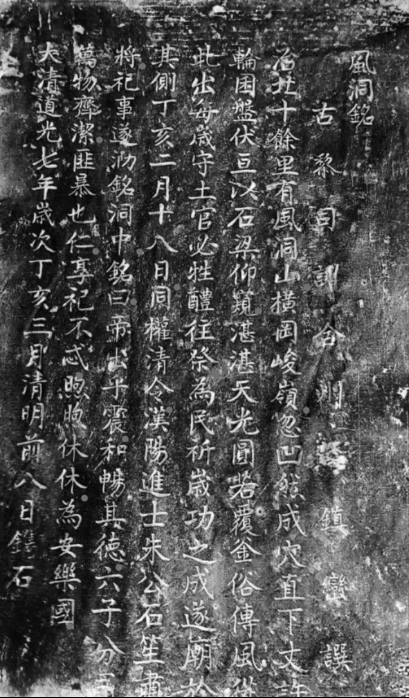 風洞銘
古黎目訓合州鎮蠻譔
治北十餘里有風洞山橫岡峻嶺忽凹然成穴直下丈許
輪囷盤伏亘以石梁仰窺湛湛天光圓若覆釜俗傳風從
此出每歲守土官必牲醴往祭為民祈歲功之成遂廟於
其側丁亥二月十八日同權清令漢陽進士朱公石笙肅
將祀事遂泐銘洞中銘曰帝出乎震和暢其德六子分
萬物齊潔匪暴也仁享祀不忒煦煦休休為安樂國
大清道光七年歲次丁亥三月清明前八日鐫石